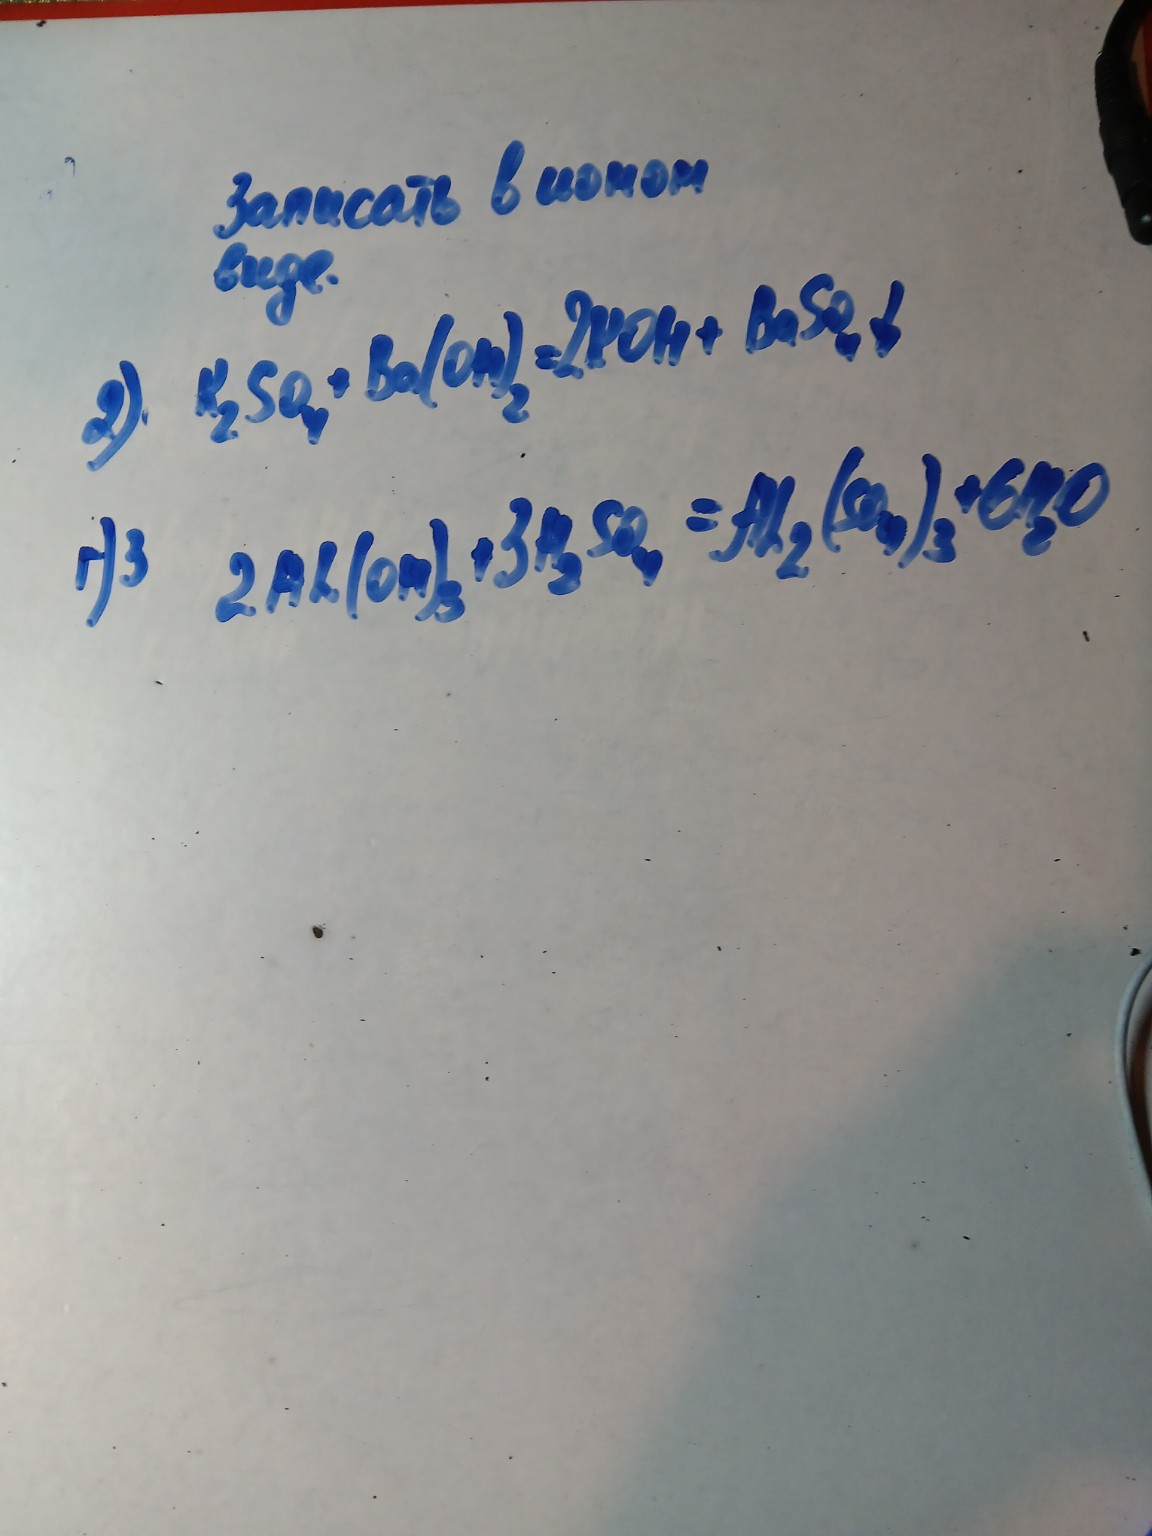 Записать в ионом
виде.
2). K₂SO₄ + Ba(OH)₂ = 2KOH + BaSO₄↓
г)3 2Al(OH)₃ + 3H₂SO₄ = Al₂(SO₄)₃ + 6H₂O